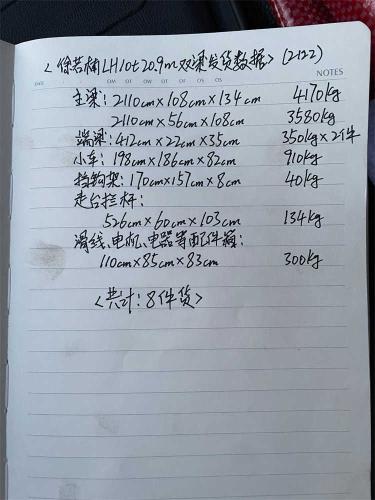 <徐若楠LH10t±20.9m双梁发货数据> (2122)
DATE
NOTES
主梁: 2110cm×108cm×134cm 4170kg
2110cm×56cm×108cm 3580kg
端梁: 412cm×22cm×35cm 350kg×2件
小车: 198cm×186cm×82cm 910kg
挡钩架: 170cm×157cm×8cm 40kg
走台拦杆:
526cm×60cm×103cm 134kg
滑线、电机、电器等配件箱:
110cm×85cm×83cm 300kg
<共计: 8件货>